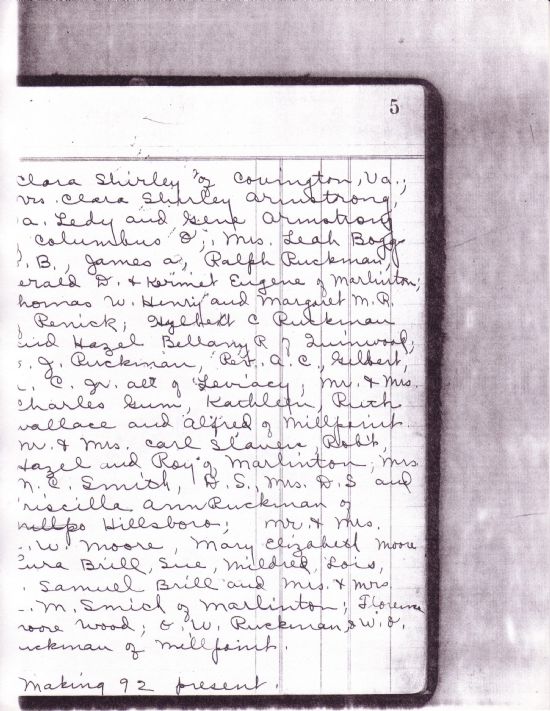 5
Clara Shirley of Covington, Va.;
rs. Clara Shirley Armstrong,
a. Ledy and Gene Armstrong
Columbus O.; Mrs. Leah Boggs
. B., James A., Ralph Ruckman,
erald D. & Kermit Eugene of Marlinton;
homas W. Henry and Margaret M. R.
Renick; C Ruckman
and Hazel Bellamy R of Quinwood;
. J. Ruckman, Rev. A. C., Gilbert,
. C. Jr. all of ; Mr. & Mrs.
Charles Gum, Kathleen, Ruth
Wallace and Alfred of Millpoint.
Mr. & Mrs. Carl , Rob't,
Hazel and Roy of Marlinton; Mrs
N. C. Smith, D. S., Mrs. D. S and
riscilla Ann Ruckman of
millpo Hillsboro; Mr. & Mrs.
. W. Moore, Mary Elizabeth Moore
Brill, Sue, Mildred, Lois,
. Samuel Brill and Mrs. & Mrs
. M. of Marlinton; Florence
oore Wood; O. W. Ruckman & W. O.
uckman of Millpoint.
Making 92 present.